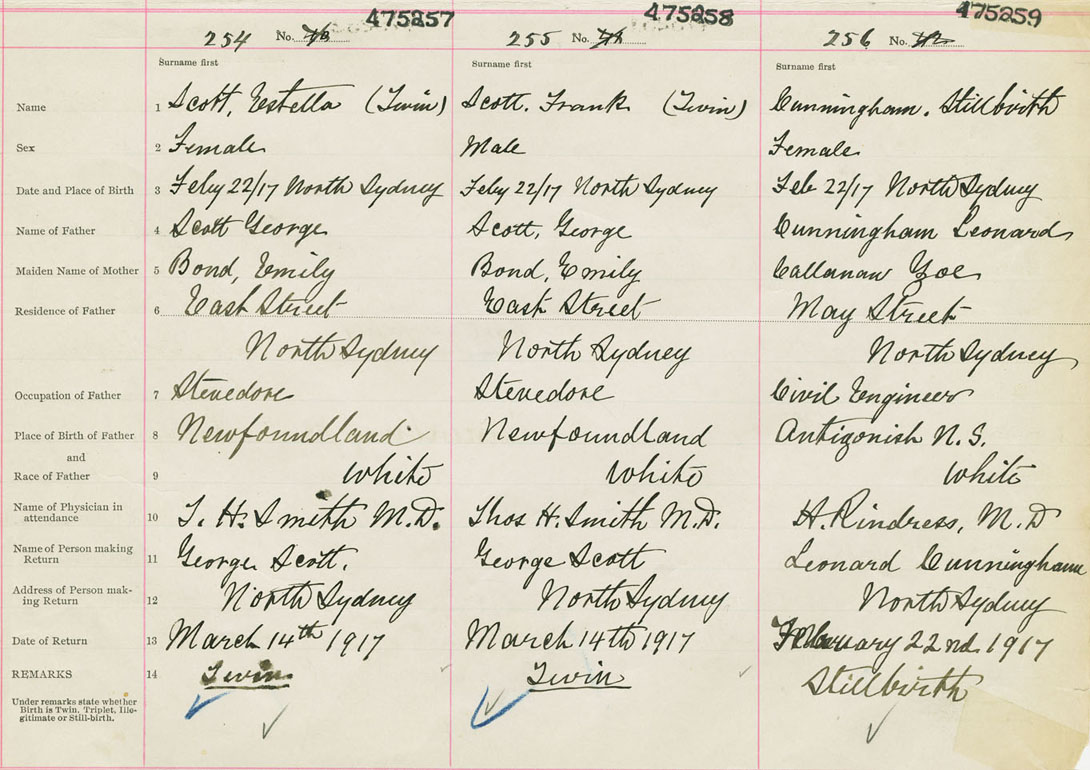 475257 475258 475259
254 No. 255 No. 256 No.
Surname first Surname first Surname first
Name 1 Scott, Estella (Twin) Scott. Frank (Twin) Cunningham. Stillbirth
Sex 2 Female Male Female
Date and Place of Birth 3 Feby 22/17 North Sydney Feby 22/17 North Sydney Feb 22/17 North Sydney
Name of Father 4 Scott George Scott, George Cunningham Leonard
Maiden Name of Mother 5 Bond, Emily Bond, Emily Callanan Zoe
Residence of Father 6 East Street East Street May Street
North Sydney North Sydney North Sydney
Occupation of Father 7 Stevedore Stevedore Civil Engineer
Place of Birth of Father 8 Newfoundland Newfoundland Antigonish N.S.
and
Race of Father 9 White White White
Name of Physician in
attendance 10 T. H. Smith M.D. Thos H. Smith M.D. H. Rindress, M.D
Name of Person making
Return 11 George Scott. George Scott Leonard Cunningham
Address of Person mak-
ing Return 12 North Sydney North Sydney North Sydney
Date of Return 13 March 14th 1917 March 14th 1917 February 22nd. 1917
REMARKS 14 Twin Twin Stillbirth
Under remarks state whether
Birth is Twin, Triplet, Ille-
gitimate or Still-birth.